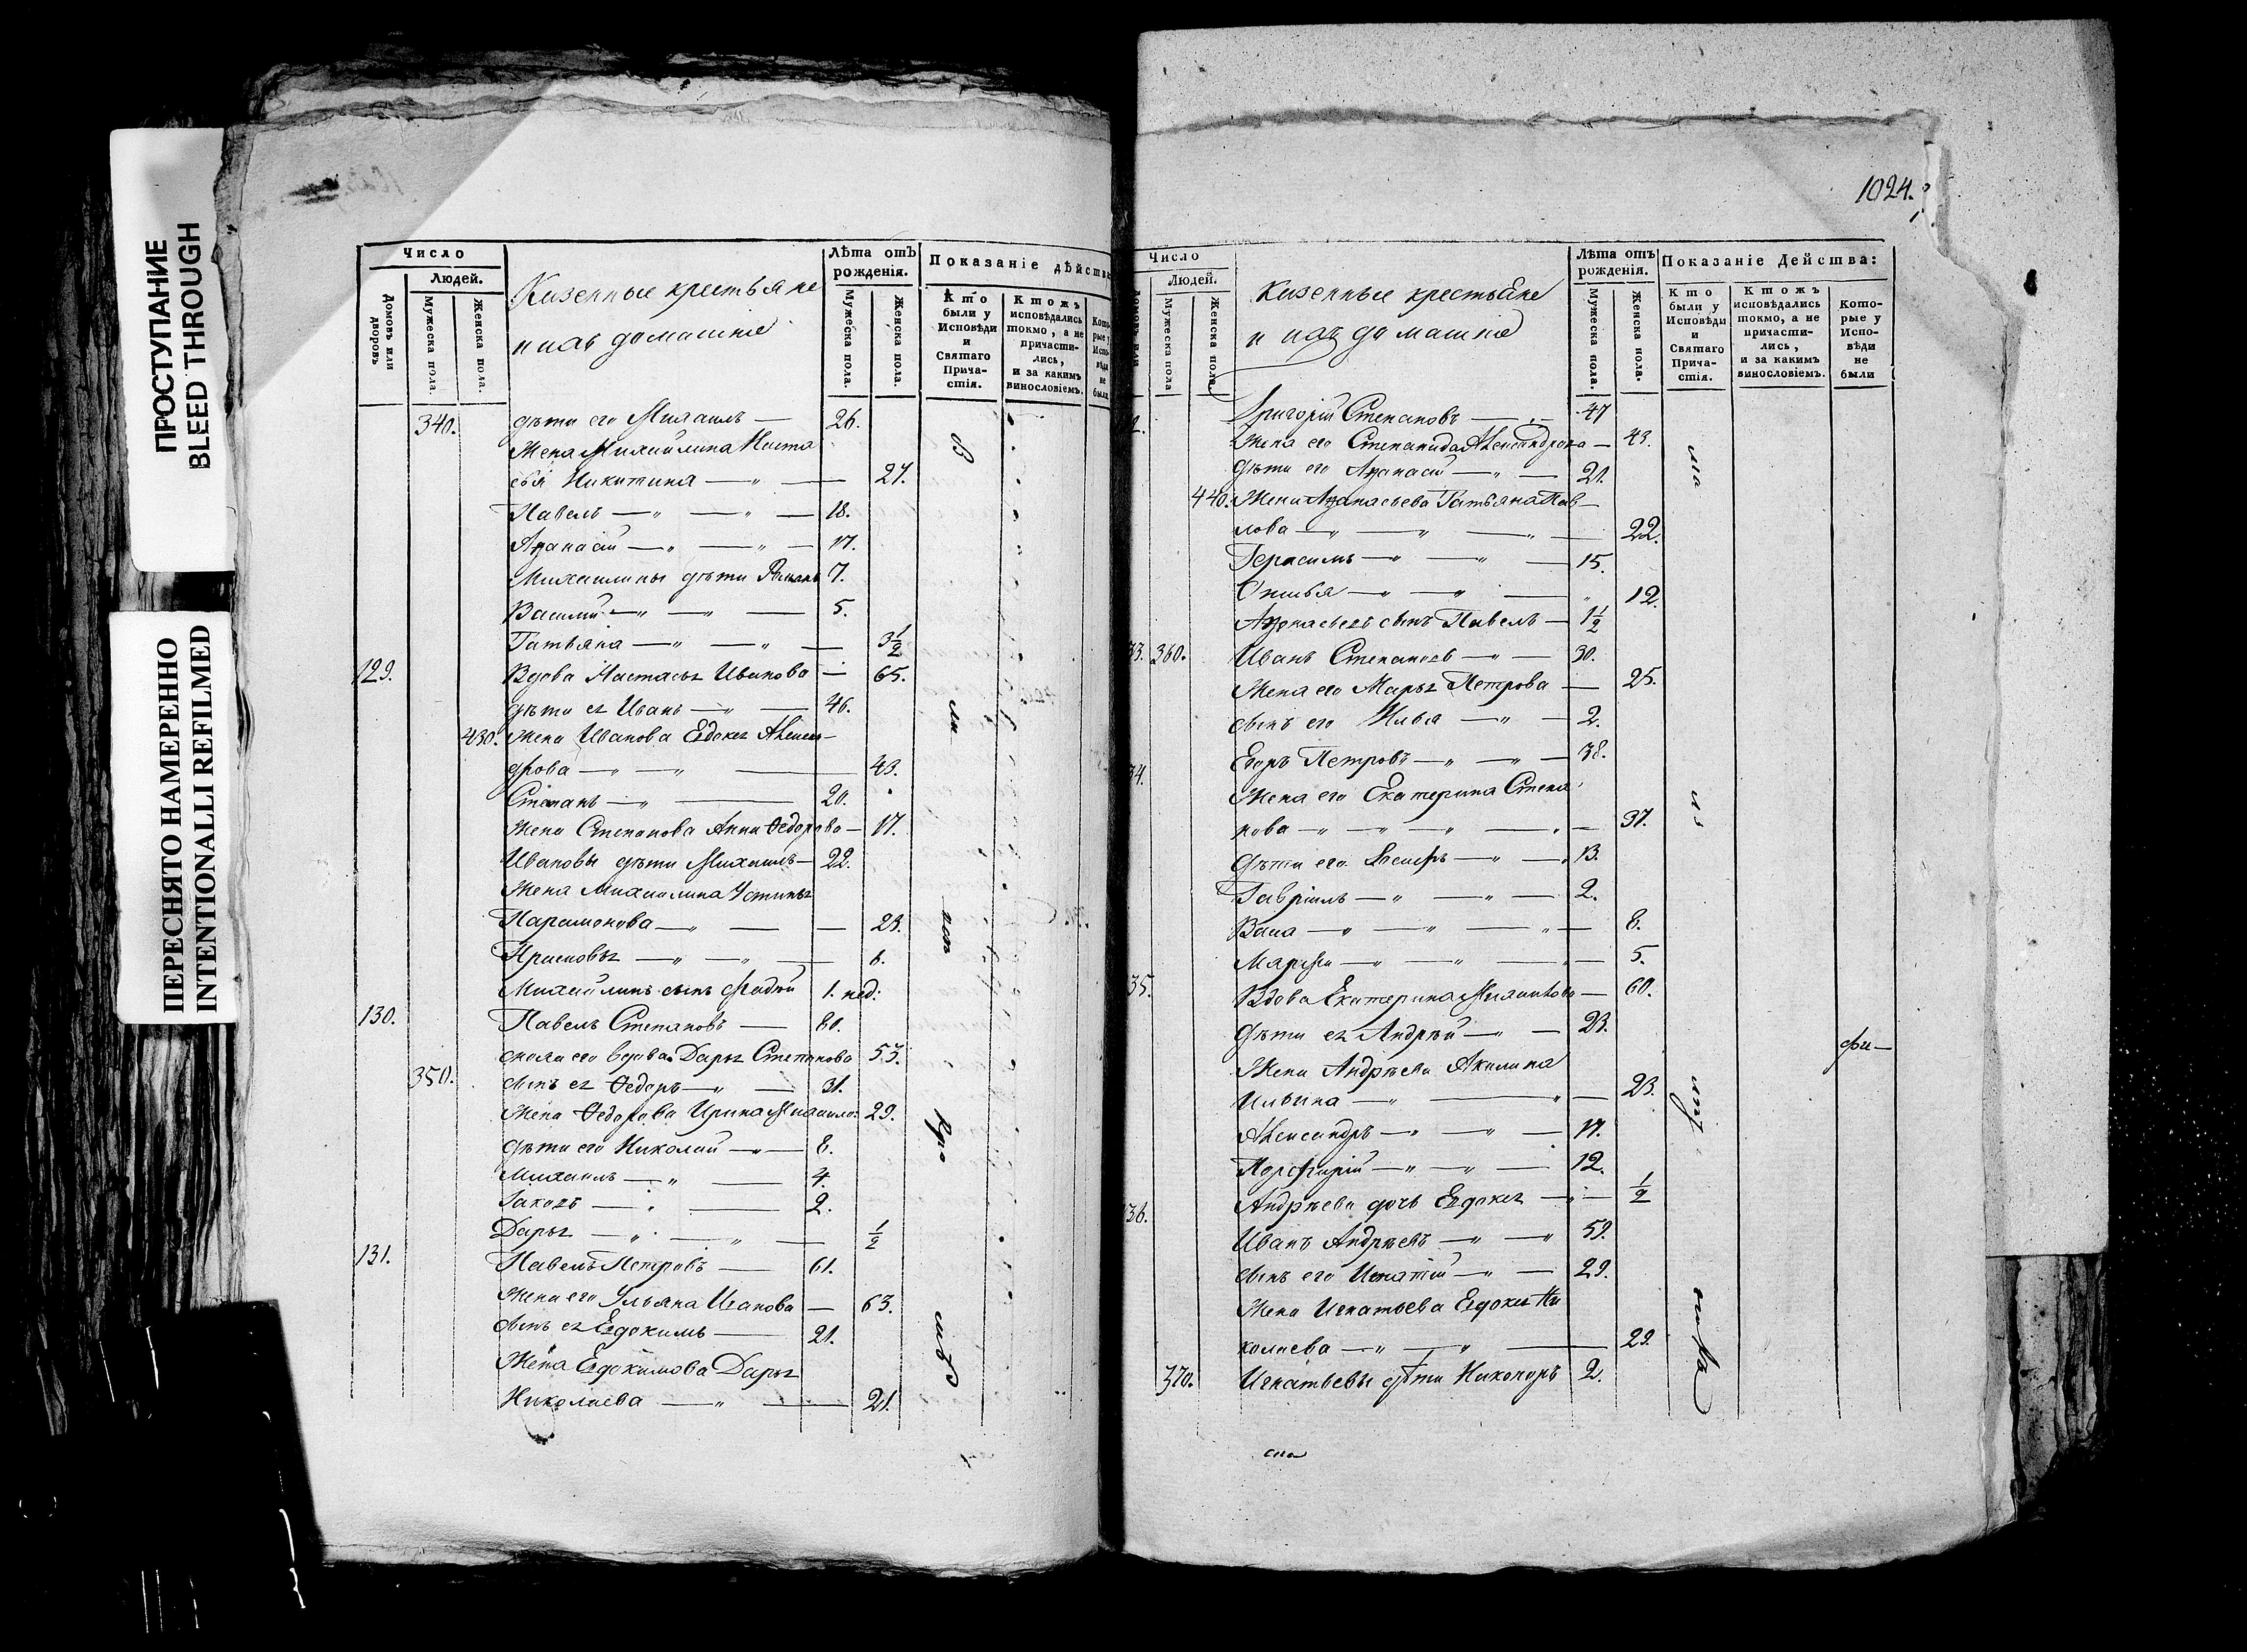 ПРОСТУПАНИЕ
BLEED THROUGH
ПЕРЕСНЯТО НАМЕРЕННО
INTENTIONALLI REFILMED
Число
Людей.
Домовъ или дворовъ
Мужеска пола.
Женска пола.
Казенные крестьяне
и ихъ домашніе
Лѣта отъ рожденія.
Мужеска пола.
Женска пола.
Показаніе дѣйства
Кто были у Исповѣди и Святаго Причастія.
Ктожъ исповѣдались токмо, а не причастились, и за какимъ винословіемъ.
340. дѣти его Михаилъ — 26.
Жена Михайлина Наста
сья Никитина — " — 27.
Павелъ — " — " — 18.
Афанасій — " — " — 17.
Михаилины дѣти Романъ 7.
Василій — " — " — 5.
Татьяна — " — " — 3 1/2
129. Вдова Настасья Иванова — 65.
дѣти ея Иванъ — " — 46.
430. Жена Иванова Евдокия Алексан-
дрова — " — " — 43.
Степанъ — " — 20.
Жена Степанова Анна Ѳедорова — 17.
Ивановы дѣти Михаилъ — 22.
Жена Михаилина Устинья
Парамонова — " — 23.
Прасковья — " — " — 6.
Михайлинъ сынъ Фадѣй 1. нед:
130. Павелъ Степановъ — 80.
сноха его вдова Дарья Степанова 53.
350. сынъ ея Ѳедоръ — " — 31.
Жена Ѳедорова Ирина Михаило: 29.
дѣти его Николай — " — 8.
Михаилъ — " — 4.
Іаковъ — " — 2.
Дарья — " — " — 1/2
131. Павелъ Петровъ — 61.
Жена его Ульяна Иванова — 63.
сынъ ея Евдокимъ — 21.
Жена Евдокимова Дарья
Николаева — " — 21.
1024.
Число
Людей.
Мужеска пола
Женска пола.
Казенные крестьяне
и ихъ домашніе
Лѣта отъ рожденія.
Мужеска пола.
Женска пола.
Показаніе Действа:
Кто были у Исповѣди и Святаго Причастія.
Ктожъ исповѣдались токмо, а не причастились, и за какимъ винословіемъ.
Которые у Исповѣди не были
Григорій Степановъ — " — 47
Жена его Степанида Александрова — 43.
Дѣти его Афанасій — " — 21.
440. Жена Афанасьева Татьяна Пав-
лова — " — " — " — 22.
Герасимъ — " — " — 15.
— " — " — 12.
Афонасьевъ сынъ Павелъ — 1 1/2
33. 360. Иванъ Степановъ — " — 30.
Жена его Марья Петрова — 25.
сынъ его Илья — " — 2.
34. Егоръ Петровъ — " — " — 38.
Жена его Екатерина Степа
нова — " — " — " — 37.
Дѣти его — " — " 13.
Гавріилъ — " — " — 2.
Васа — " — " — " — 8.
Марфа — " — " — " — 5.
35. Вдова Екатерина — 60.
Дѣти ея Андрѣй — " — 23.
Жена Андрѣева Акилина
Ильина — " — " — 23.
Александръ — " — " — 17.
Порфирій — " — " — 12.
Андрѣева дочь Евдокея — " — 1/2
36. Иванъ Андрѣевъ — " — " 59.
сынъ его Игнатій — " — 29.
Жена Игнатьева Евдокия Ни
колаева — " — " — 29.
370. Игнатьевы дѣти Никоноръ 2.